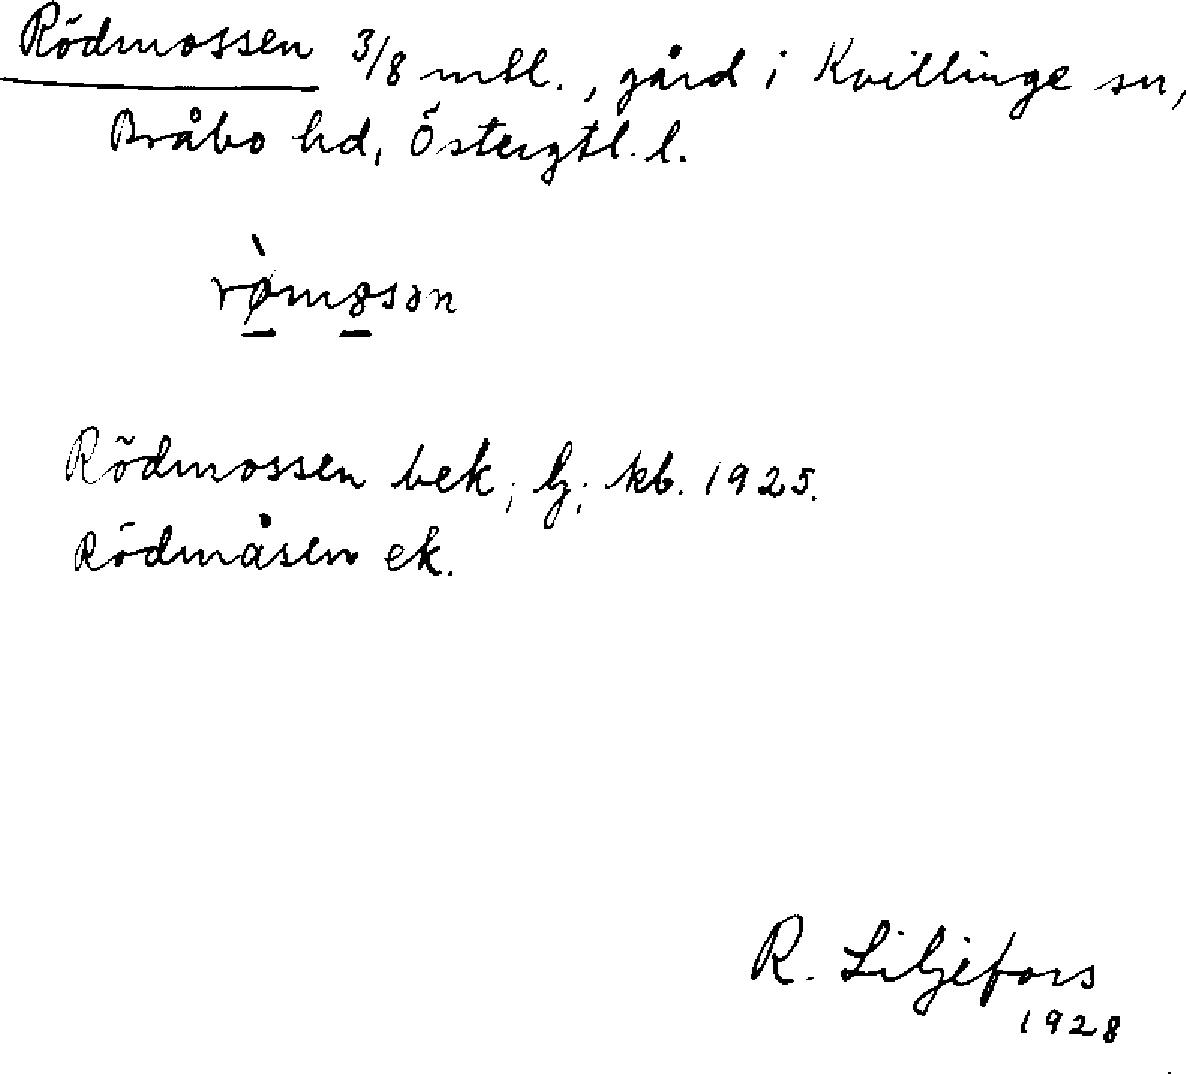 Rödmossen 3/8 mtl., gård i Kvillinge sn,
Bråbo hd, Östergtl. l.
rø̀mɵsən
Rödmossen bek; lj; kb. 1925.
Rödmåsen ek.
R. Liljefors
1928